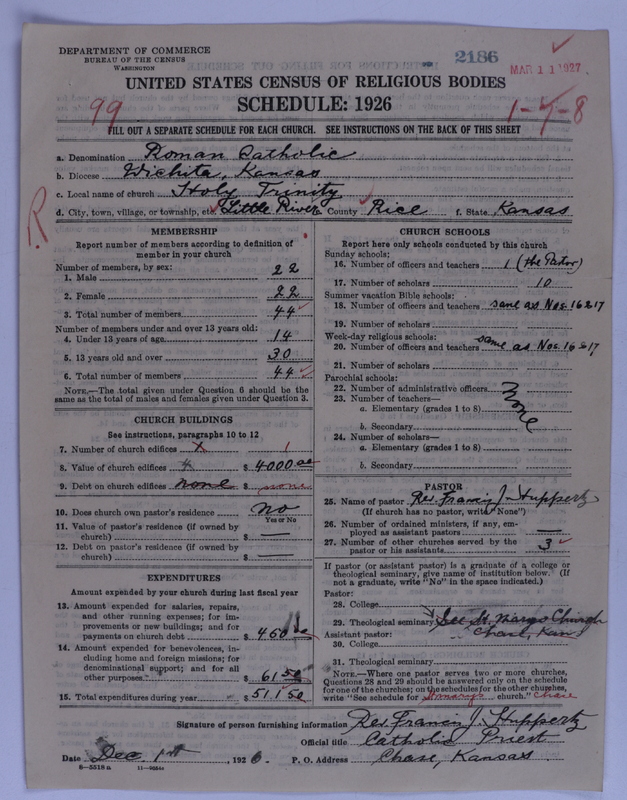 DEPARTMENT OF COMMERCE
BUREAU OF THE CENSUS
WASHINGTON
2186
MAR 11 1927
UNITED STATES CENSUS OF RELIGIOUS BODIES
SCHEDULE: 1926
99
1-7-8
FILL OUT A SEPARATE SCHEDULE FOR EACH CHURCH. SEE INSTRUCTIONS ON THE BACK OF THIS SHEET
a. Denomination Roman Catholic
b. Diocese Wichita, Kansas
c. Local name of church Holy Trinity
d. City, town, village, or township, etc. Little River County Rice f. State Kansas
R
MEMBERSHIP
Report number of members according to definition of
member in your church
Number of members, by sex:
1. Male 22
2. Female 22
3. Total number of members 44
Number of members under and over 13 years old:
4. Under 13 years of age 14
5. 13 years old and over 30
6. Total number of members 44
NOTE.—The total given under Question 6 should be the
same as the total of males and females given under Question 3.
CHURCH BUILDINGS
See instructions, paragraphs 10 to 12
7. Number of church edifices 1
8. Value of church edifices $ 4000.00
9. Debt on church edifices none $ none
10. Does church own pastor's residence no
Yes or No
11. Value of pastor's residence (if owned by
church) $ —
12. Debt on pastor's residence (if owned by
church) $ —
EXPENDITURES
Amount expended by your church during last fiscal year
13. Amount expended for salaries, repairs,
and other running expenses; for im-
provements or new buildings; and for
payments on church debt $ 450.00
14. Amount expended for benevolences, in-
cluding home and foreign missions; for
denominational support; and for all
other purposes $ 61.50
15. Total expenditures during year $ 511.50
CHURCH SCHOOLS
Report here only schools conducted by this church
Sunday schools:
16. Number of officers and teachers 1 (the Pastor)
17. Number of scholars 10
Summer vacation Bible schools:
18. Number of officers and teachers same as Nos. 16 & 17
19. Number of scholars
Week-day religious schools:
20. Number of officers and teachers same as Nos. 16 & 17
21. Number of scholars
Parochial schools:
22. Number of administrative officers
23. Number of teachers—
a. Elementary (grades 1 to 8) None
b. Secondary
24. Number of scholars—
a. Elementary (grades 1 to 8)
b. Secondary
PASTOR
25. Name of pastor Rev. Francis J. Huppertz
(If church has no pastor, write "None")
26. Number of ordained ministers, if any, em-
ployed as assistant pastors —
27. Number of other churches served by the
pastor or his assistants 3
If pastor (or assistant pastor) is a graduate of a college or
theological seminary, give name of institution below. (If
not a graduate, write "No" in the space indicated.)
Pastor:
28. College
29. Theological seminary See St. Marys Church
Assistant pastor: Chase, Kan
30. College
31. Theological seminary
NOTE.—Where one pastor serves two or more churches,
Questions 28 and 29 should be answered only on the schedule
for one of the churches; on the schedules for the other churches,
write "See schedule for St marys church." Chase
Signature of person furnishing information Rev. Francis J. Huppertz
Official title Catholic Priest
Date Dec. 1st, 1926. P. O. Address Chase, Kansas
8—5518 a